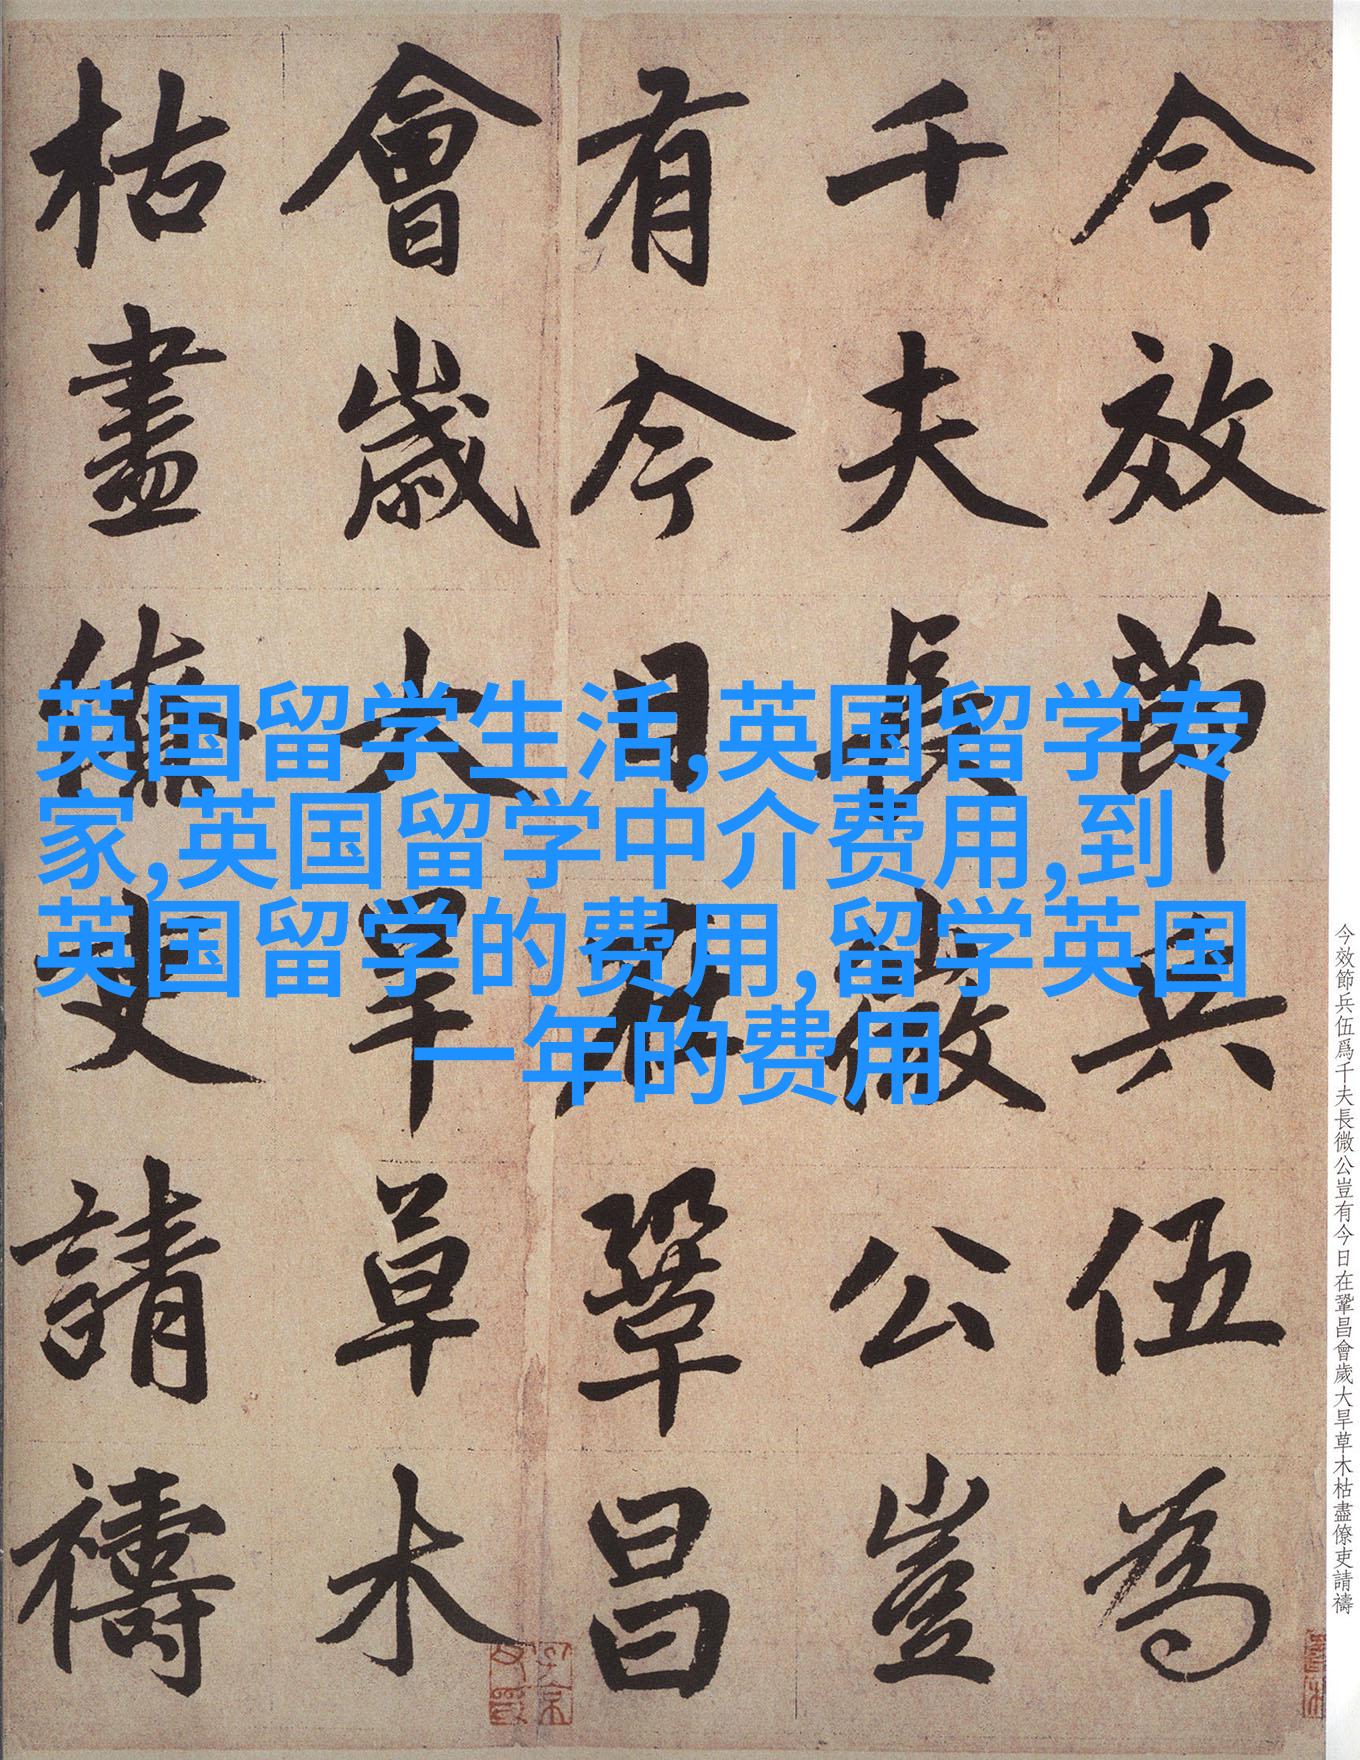 今效節兵伍為
千夫長微公豈
有今日在鞏昌
會歲大旱草木
枯盡僚吏請禱
英国留学生活,英国留学专
家,英国留学中介费用,到
英国留学的费用,留学英国
一年的费用
今效節兵伍爲千夫長微公豈有今日在鞏昌會歲大旱草木枯盡僚吏請禱